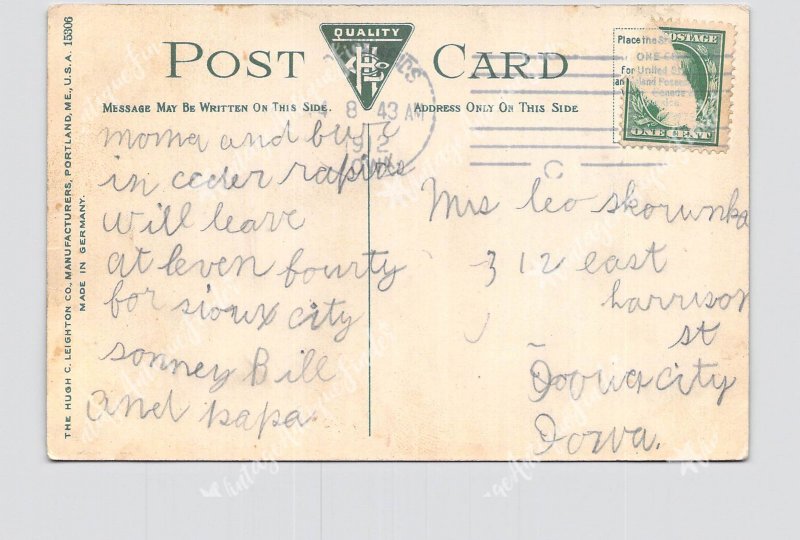 THE HUGH C. LEIGHTON CO., MANUFACTURERS, PORTLAND, ME., U.S.A. 15306
MADE IN GERMANY.
QUALITY
POST CARD
MESSAGE MAY BE WRITTEN ON THIS SIDE.
ADDRESS ONLY ON THIS SIDE
Place the
ONE
for United
POSTAGE
ONE CENT
8 43 AM
moma and
in ceder rapids
will leave
at leven fourty
for sioux city
sonney Bill
and papa
Mrs leo skorunka
312 east
harrison
st
Iowa city
Iowa.